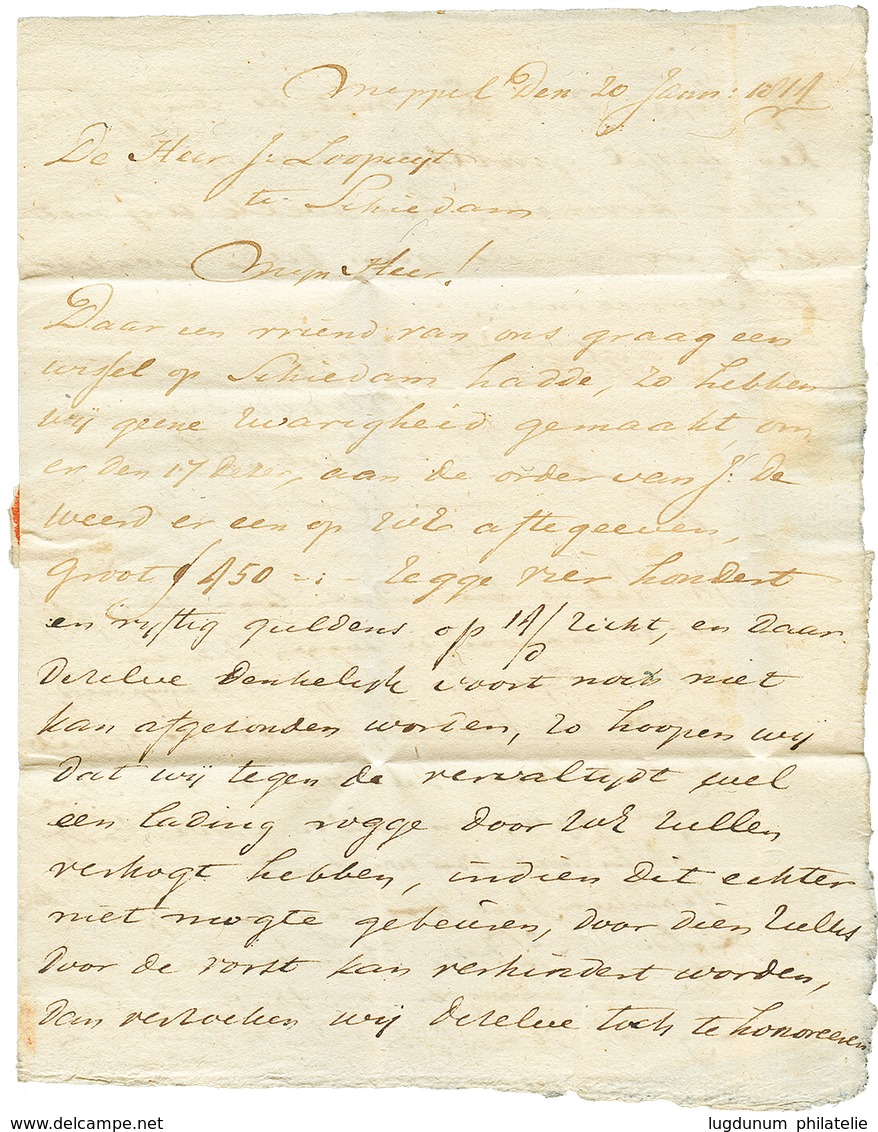 Meppel Den 20 Jann: 1814
De Heer J: Loopuyt
te Schiedam
Mijn Heer!
Daar een vriend van ons graag een
wissel op Schiedam hadde, zo hebben
wij geene zwarigheid gemaakt, om
er den 17 dezer, aan de order van J: De
Weerd er een op UwE afte geeven,
Groot ƒ 450 -:- zegge vier hondert
en vyftig guldens op 14/d zicht, en daar
dezelve denkelijk voort noch niet
kan afgezonden worden, zo hoopen wij
dat wij tegen de vervaltijdt wel
een lading rogge door UwE zullen
verkogt hebben, indien dit echter
niet mogte gebeuren, door dien zulks
door de vorst kan verhindert worden,
dan verzoeken wij dezelve toch te honoreeren
www.delcampe.net
lugdunum philatelie